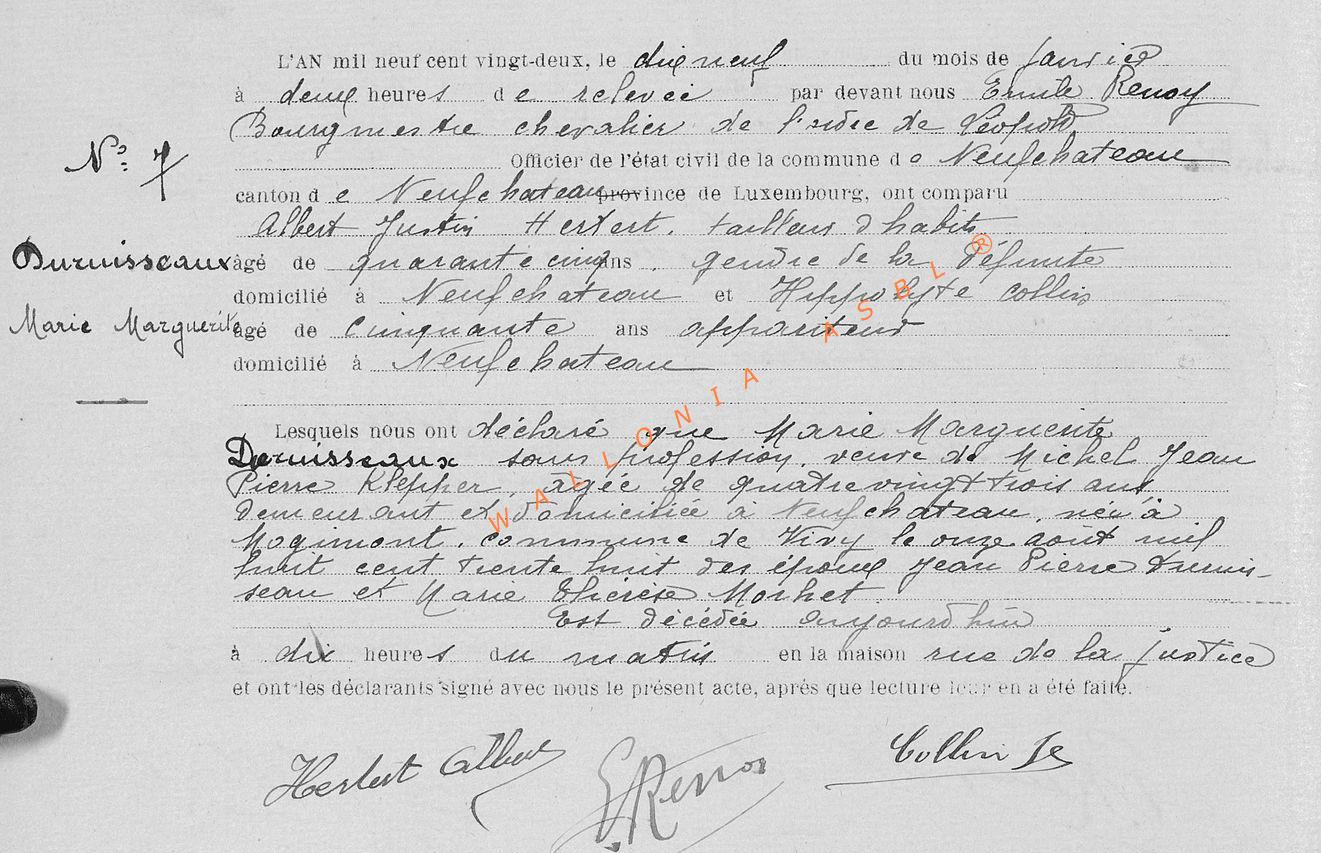 L'AN mil neuf cent vingt-deux, le dix neuf du mois de janvier
à deux heures de relevée par devant nous Emile Renoy
Bourgmestre chevalier de l'ordre de Léopold
Nº 7
Officier de l'état civil de la commune de Neufchateau
canton de Neufchateau province de Luxembourg, ont comparu
Albert Justin Herbert, tailleur d'habits
Duruisseaux
âgé de quarante cinq ans, gendre de la défunte
domicilié à Neufchateau et Hippolyte Collin
Marie Marguerite
âgé de cinquante ans appariteur
domicilié à Neufchateau
Lesquels nous ont déclaré que Marie Marguerite
Duruisseaux sans profession, veuve de Michel Jean
Pierre Klepper, âgée de quatre vingt trois ans
demeurant et domiciliée à Neufchateau, née à
Mogimont, commune de Vivy le onze août mil
huit cent trente huit des époux Jean Pierre Duruis-
seau et Marie Thérèse Morhet.
Est décédée aujourd'hui
à dix heures du matin en la maison rue de la justice
et ont les déclarants signé avec nous le présent acte, après que lecture leur en a été faite.
Herbert Albert
E Renoy
Collin
WALLONIA ASBL ®